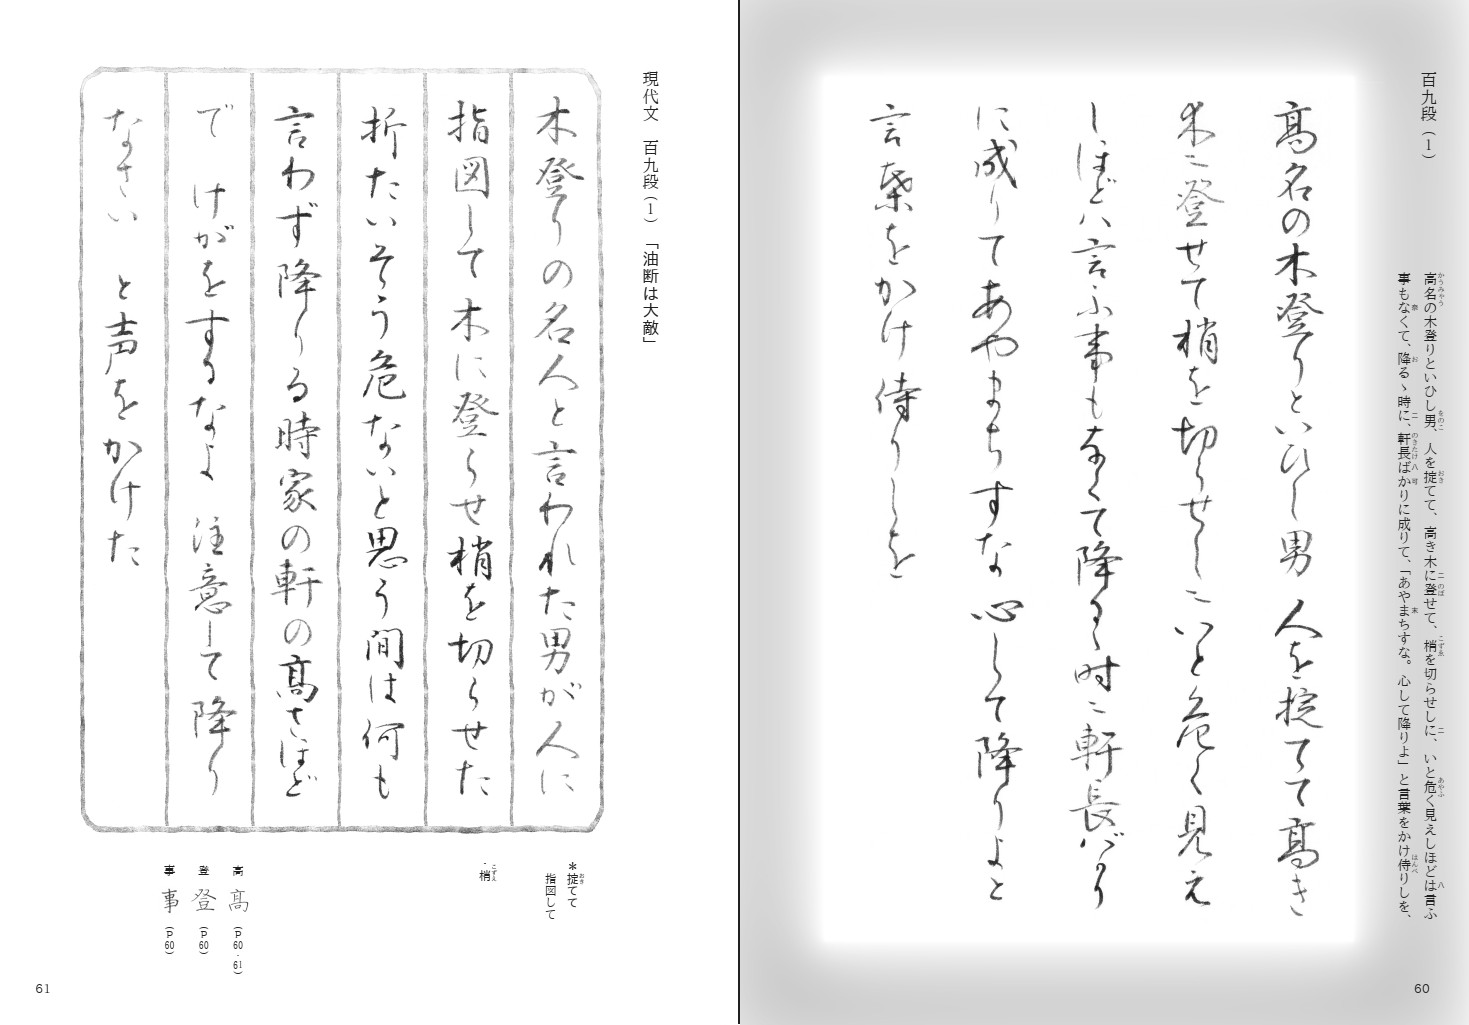 百九段（1）
高名の木登りといひし男、人を掟てて、高き木に登せて、梢を切らせしに、いと危く見えしほどは言ふ
かうみやう をのこ おき 二 のぼ こずゑ 二 あやふ 八
事もなくて、降るゝ時に、軒長ばかりに成りて、「あやまちすな。心して降りよ」と言葉をかけ侍りしを、
奈 お 二 のきたけ 八 可 末 はんべ
高名の木登りといひし男 人を掟てて高き
木に登せて梢を切らせしにいと危く見え
しほどは言ふ事もなくて降るゝ時に軒長ばかり
に成りてあやまちすな 心して降りよと
言葉をかけ侍りしを
60
現代文 百九段（1）「油断は大敵」
木登りの名人と言われた男が人に
指図して木に登らせ梢を切らせた
折たいそう危ないと思う間は何も
言わず降りる時家の軒の高さほど
で けがをするなよ 注意して降り
なさい と声をかけた
＊掟てて
おき
指図して
・梢
こずえ
高 高 （P60・61）
登 登 （P60）
事 事 （P60）
61